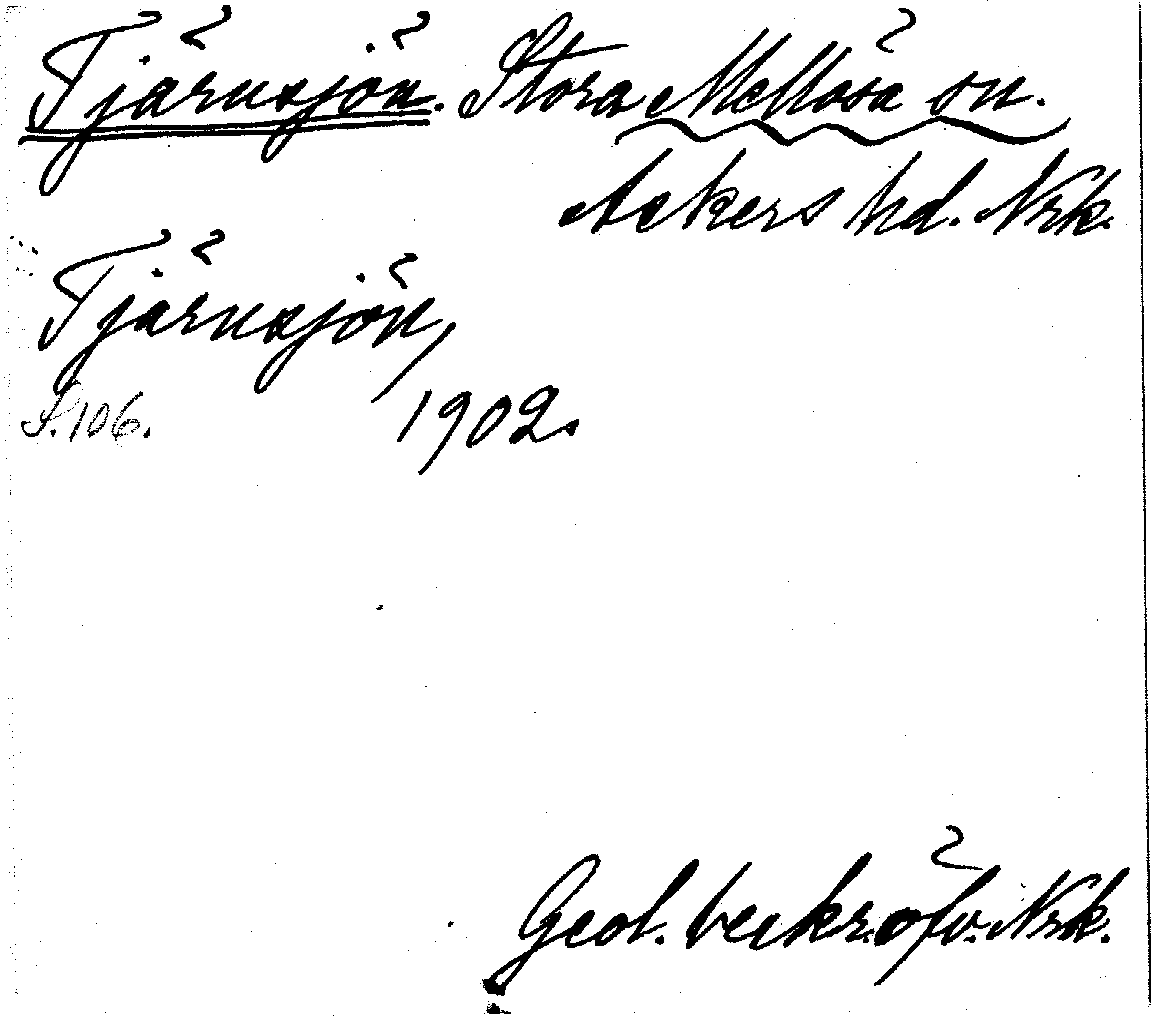 Tjärnsjön. Stora Mellösa sn.
Askers hd. Nrk.
Tjärnsjön,
S. 106. 1902.
Geol. beskr. öfv. Nrk.